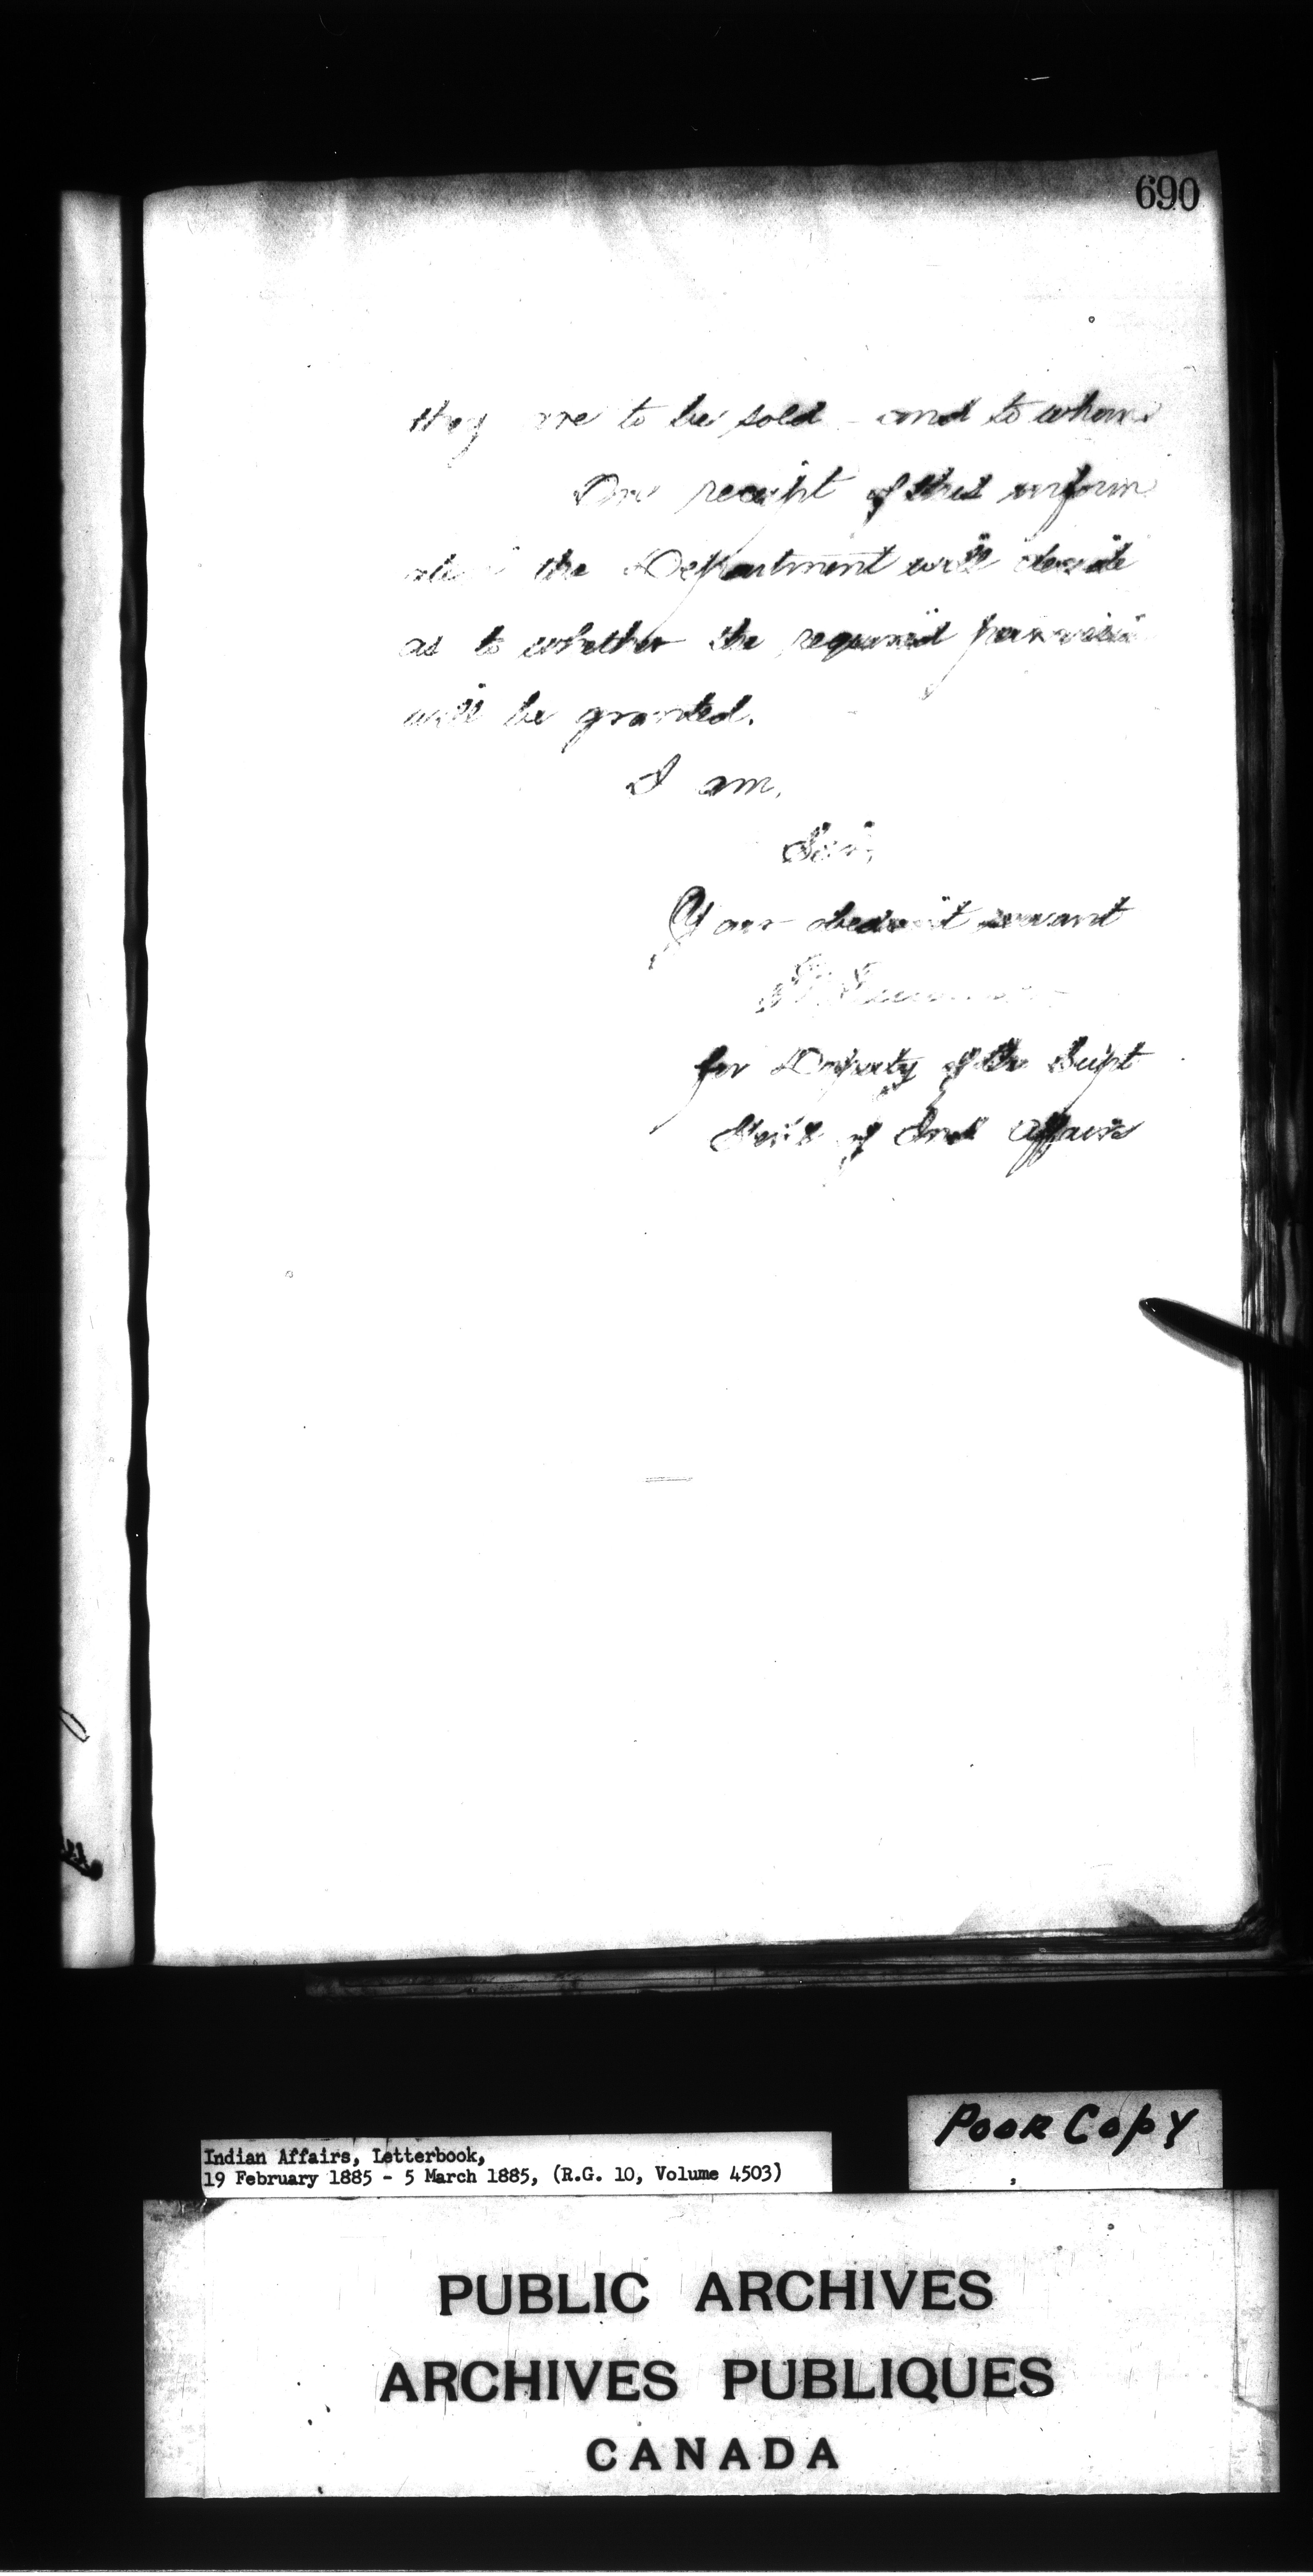 690
they are to be sold - and to whom
On receipt of this inform
ation the Department will decide
as to whether the required permission
will be granted.
I am,
Sir,
Your obedient servant
for Deputy of the Supt
Gen'l of Ind Affairs
Poor Copy
Indian Affairs, Letterbook,
19 February 1885 - 5 March 1885, (R.G. 10, Volume 4503)
PUBLIC ARCHIVES
ARCHIVES PUBLIQUES
CANADA